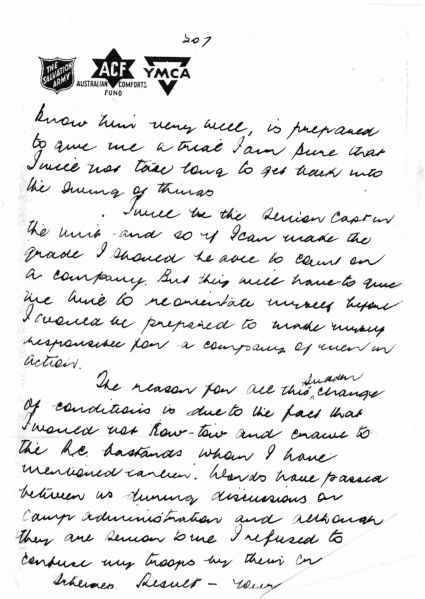 207
THE SALVATION ARMY
ACF
AUSTRALIAN COMFORTS FUND
YMCA
know him very well, is prepared
to give me a trial I am sure that
I will not take long to get back into
the swing of things
I will be the senior Capt in
the unit and so if I can make the
grade I should be able to count on
a company. But they will have to give
me time to reorientate myself before
I would be prepared to make myself
responsible for a company of men in
action.
The reason for all this sudden change
of conditions is due to the fact that
I would not Kow-tow and crawl to
the R.C. bastards whom I have
mentioned earlier. Words have passed
between us during discussions on
camp administration and although
they are senior to me I refused to
confuse my troops by their
schemes. Result - your